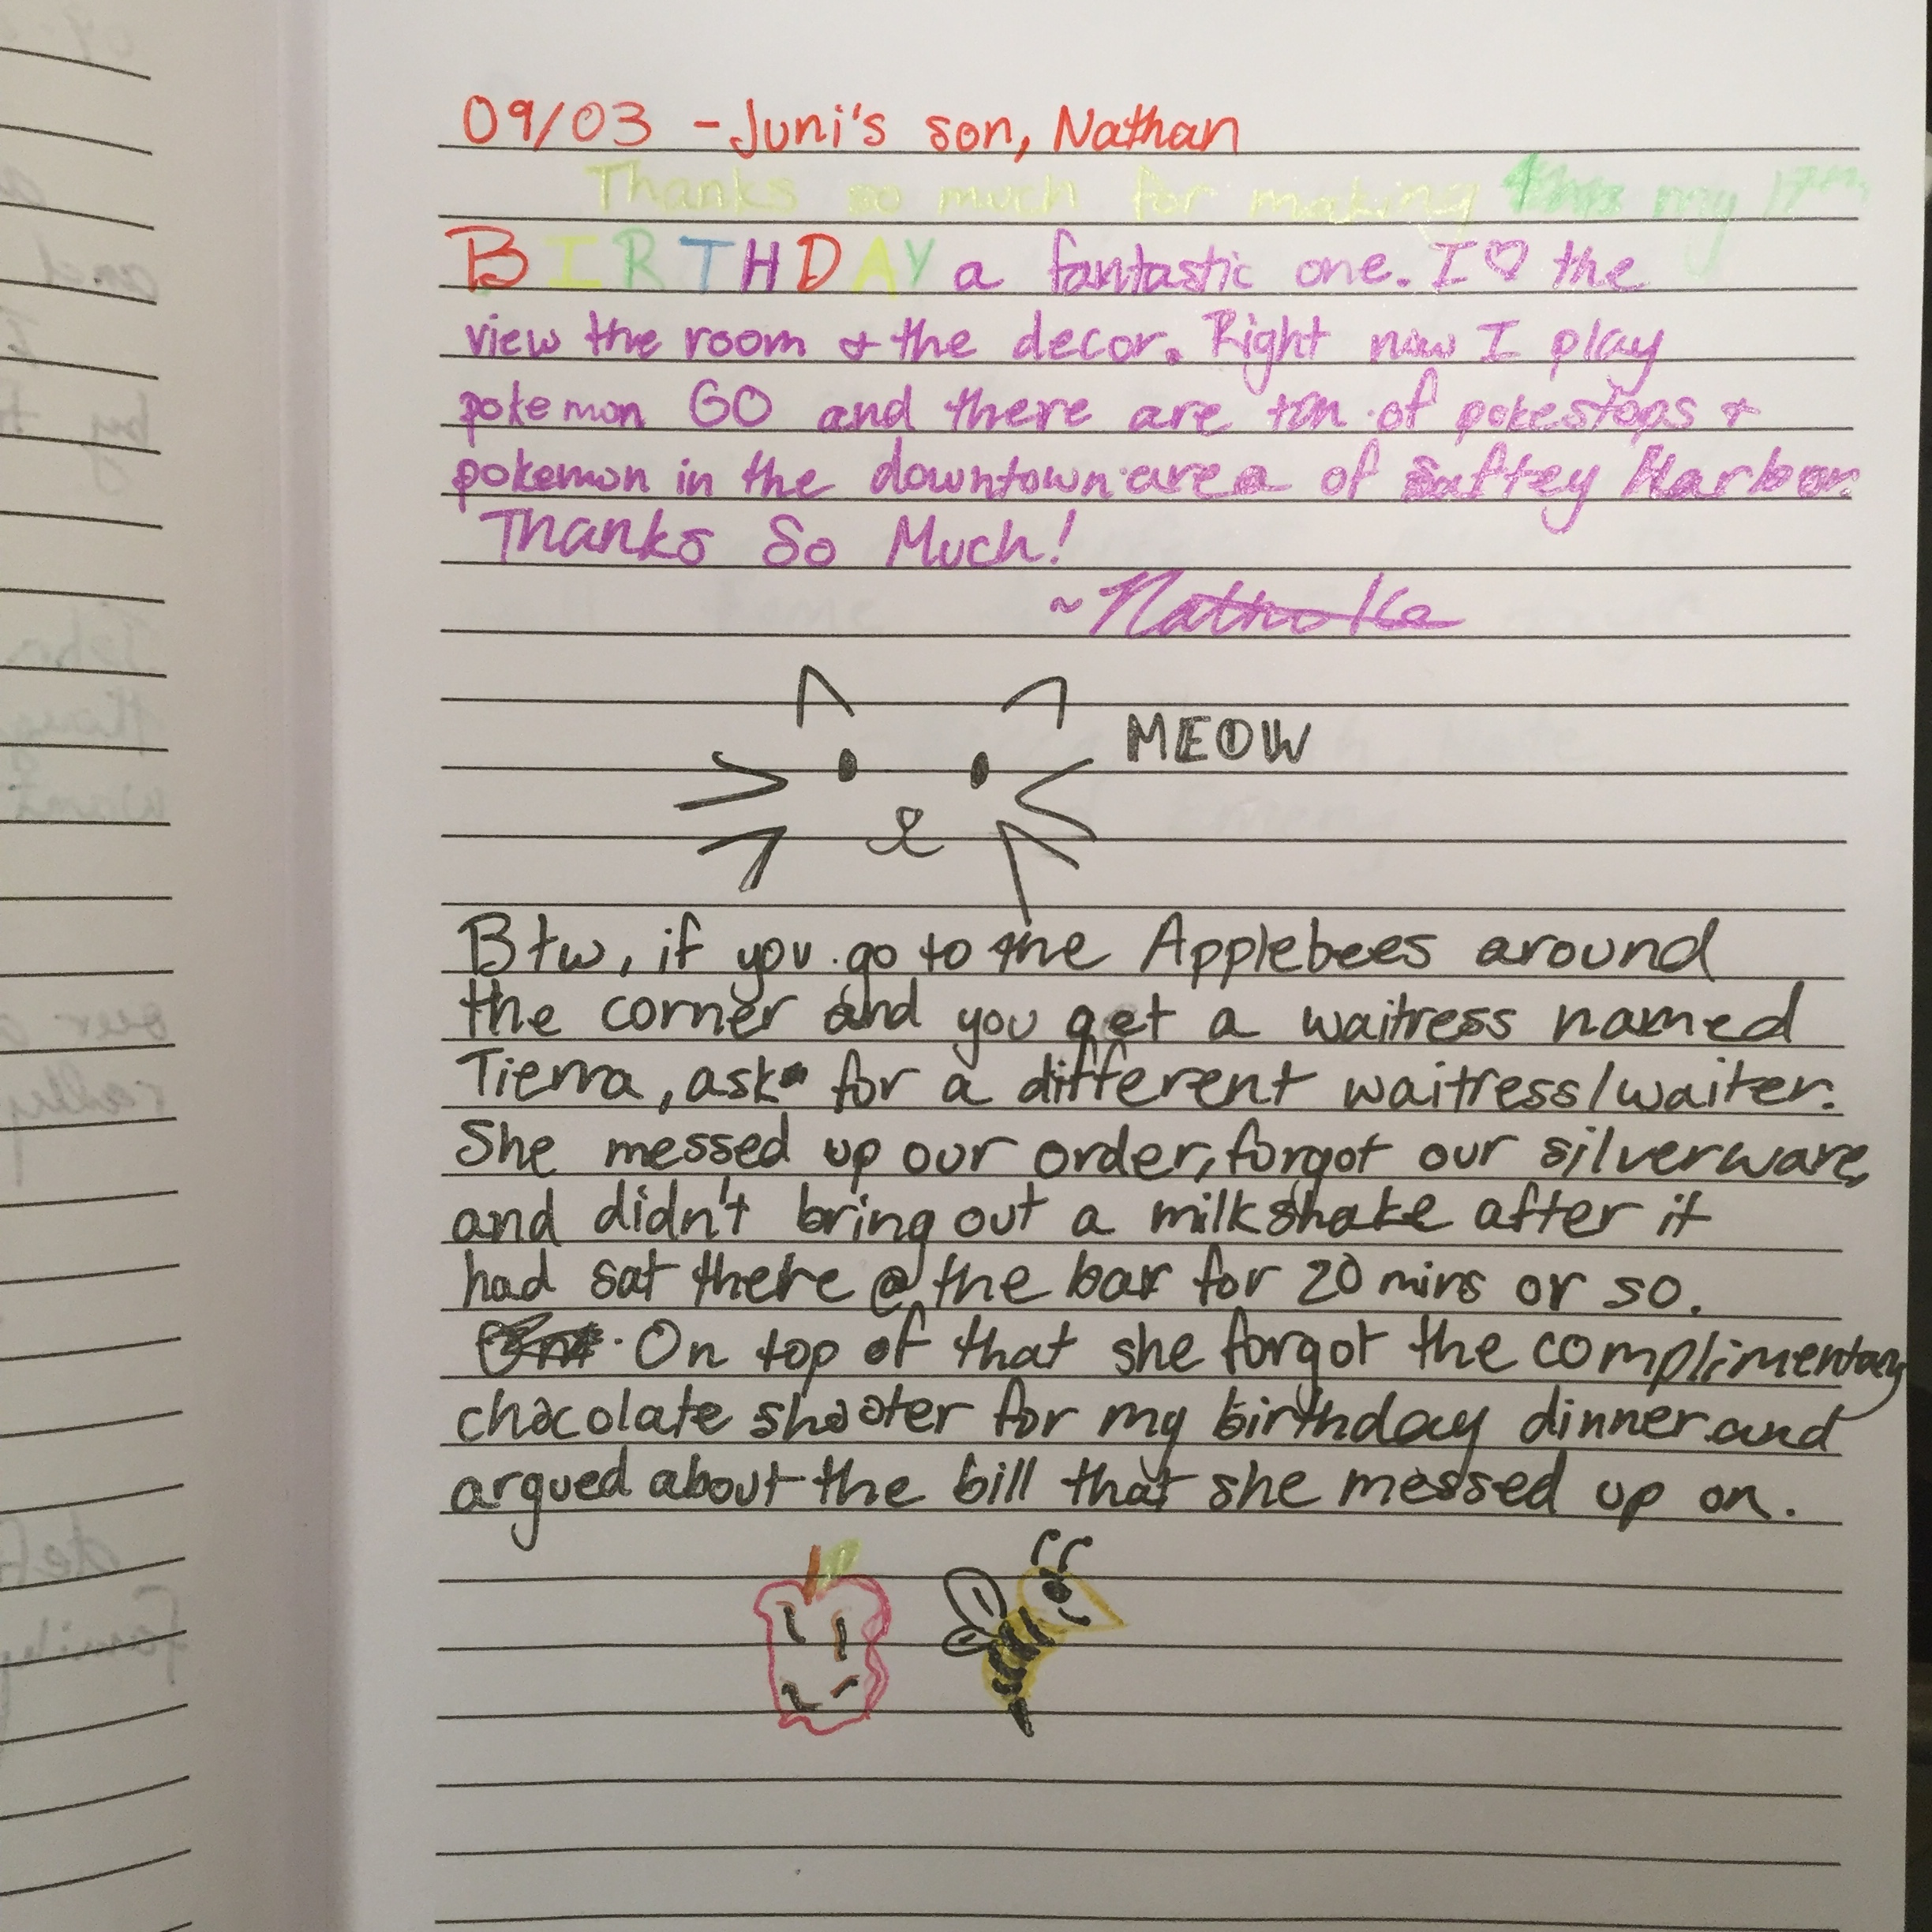 09/03 - Juni's son, Nathan
Thanks so much for making this my 17th
BIRTHDAY a fantastic one. I ♡ the
view the room & the decor. Right now I play
pokemon GO and there are ton of pokestops &
pokemon in the downtown area of Saftey Harbor
Thanks So Much!
MEOW
Btw, if you go to the Applebees around
the corner and you get a waitress named
Tierra, ask for a different waitress/waiter.
She messed up our order, forgot our silverware,
and didn't bring out a milkshake after it
had sat there @ the bar for 20 mins or so.
On top of that she forgot the complimentary
chocolate shooter for my birthday dinner and
argued about the bill that she messed up on.